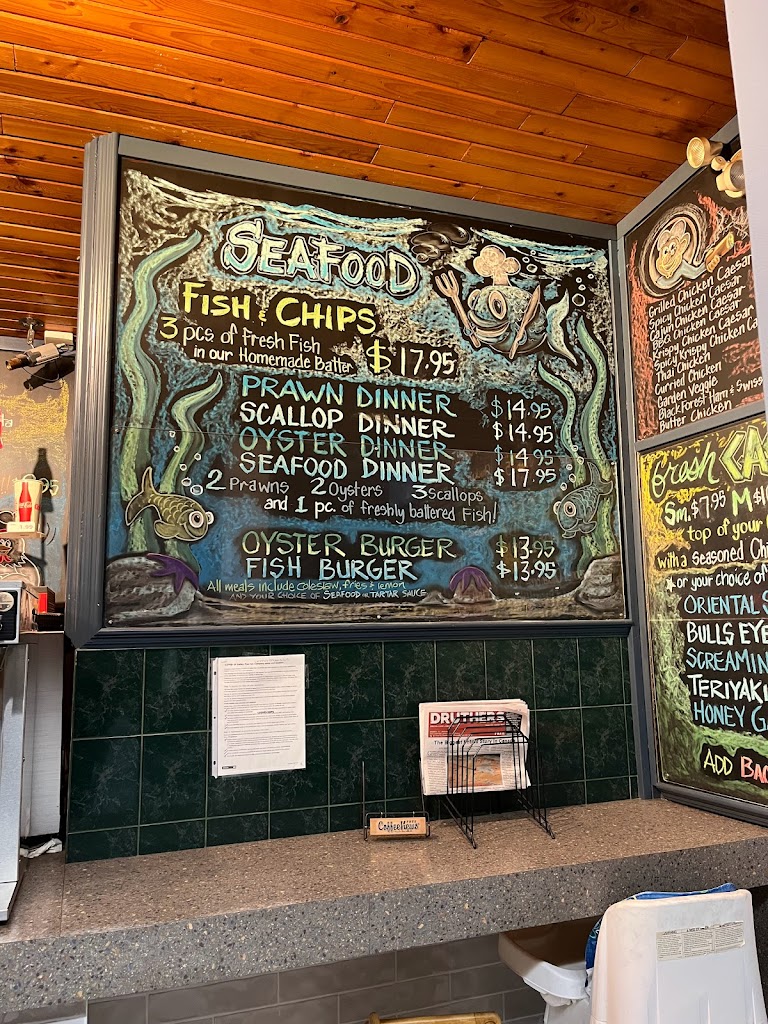 SEAFOOD
FISH & CHIPS
3 pcs of Fresh Fish
in our Homemade Batter $17.95
PRAWN DINNER $14.95
SCALLOP DINNER $14.95
OYSTER DINNER $14.95
SEAFOOD DINNER $17.95
2 Prawns 2 Oysters 3 Scallops
and 1 pc. of freshly battered Fish!
OYSTER BURGER $13.95
FISH BURGER $13.95
All meals include coleslaw, fries & lemon
AND YOUR CHOICE OF SEAFOOD OR TARTAR SAUCE
Grilled Chicken Caesar
Spicy Chicken Caesar
Cajun Chicken Caesar
BBQ Chicken Caesar
Krispy Chicken Caesar
Spicy Krispy Chicken Ca
Thai Chicken
Curried Chicken
Garden Veggie
Black Forest Ham & Swiss
Butter Chicken
Fresh CA
Sm. $7.95 M $1
top of your
with a seasoned Chi
* or your choice of
ORIENTAL S
BULLS EYE
SCREAMIN
TERIYAKI
HONEY GA
ADD BAC
DRUTHERS
CoffeeNews